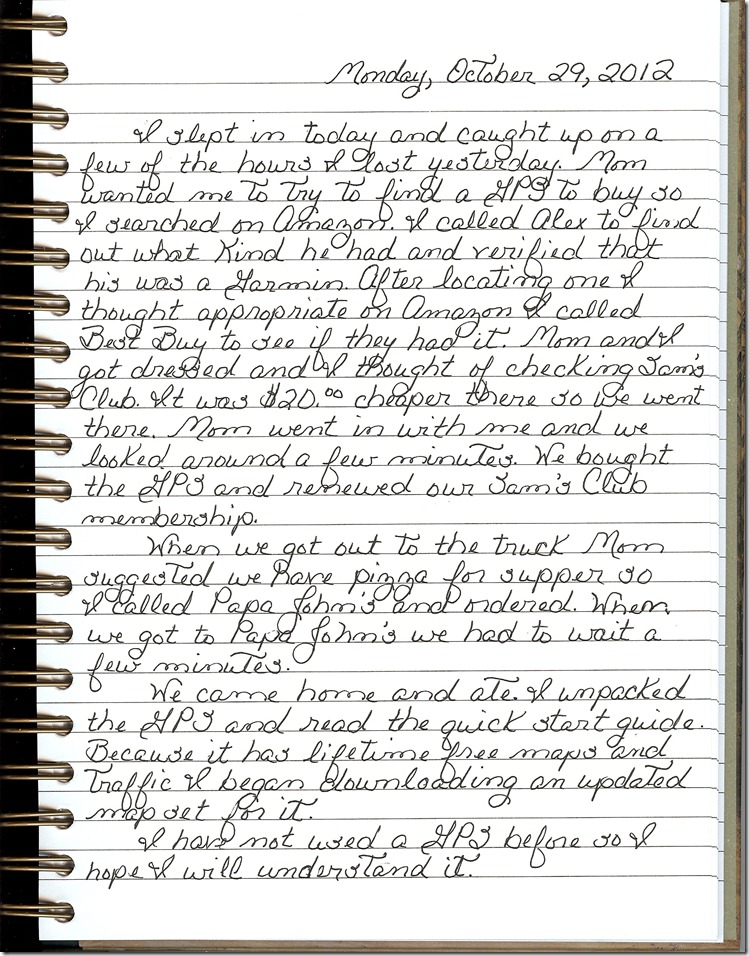 Monday, October 29, 2012
I slept in today and caught up on a
few of the hours I lost yesterday. Mom
wanted me to try to find a GPS to buy so
I searched on Amazon. I called Alex to find
out what kind he had and verified that
his was a Garmin. After locating one I
thought appropriate on Amazon I called
Best Buy to see if they had it. Mom and I
got dressed and I thought of checking Sam's
Club. It was $20.00 cheaper there so we went
there. Mom went in with me and we
looked around a few minutes. We bought
the GPS and renewed our Sam's Club
membership.
When we got out to the truck Mom
suggested we have pizza for supper so
I called Papa John's and ordered. When
we got to Papa John's we had to wait a
few minutes.
We came home and ate. I unpacked
the GPS and read the quick start guide.
Because it has lifetime free maps and
Traffic I began downloading an updated
map set for it.
I have not used a GPS before so I
hope I will understand it.